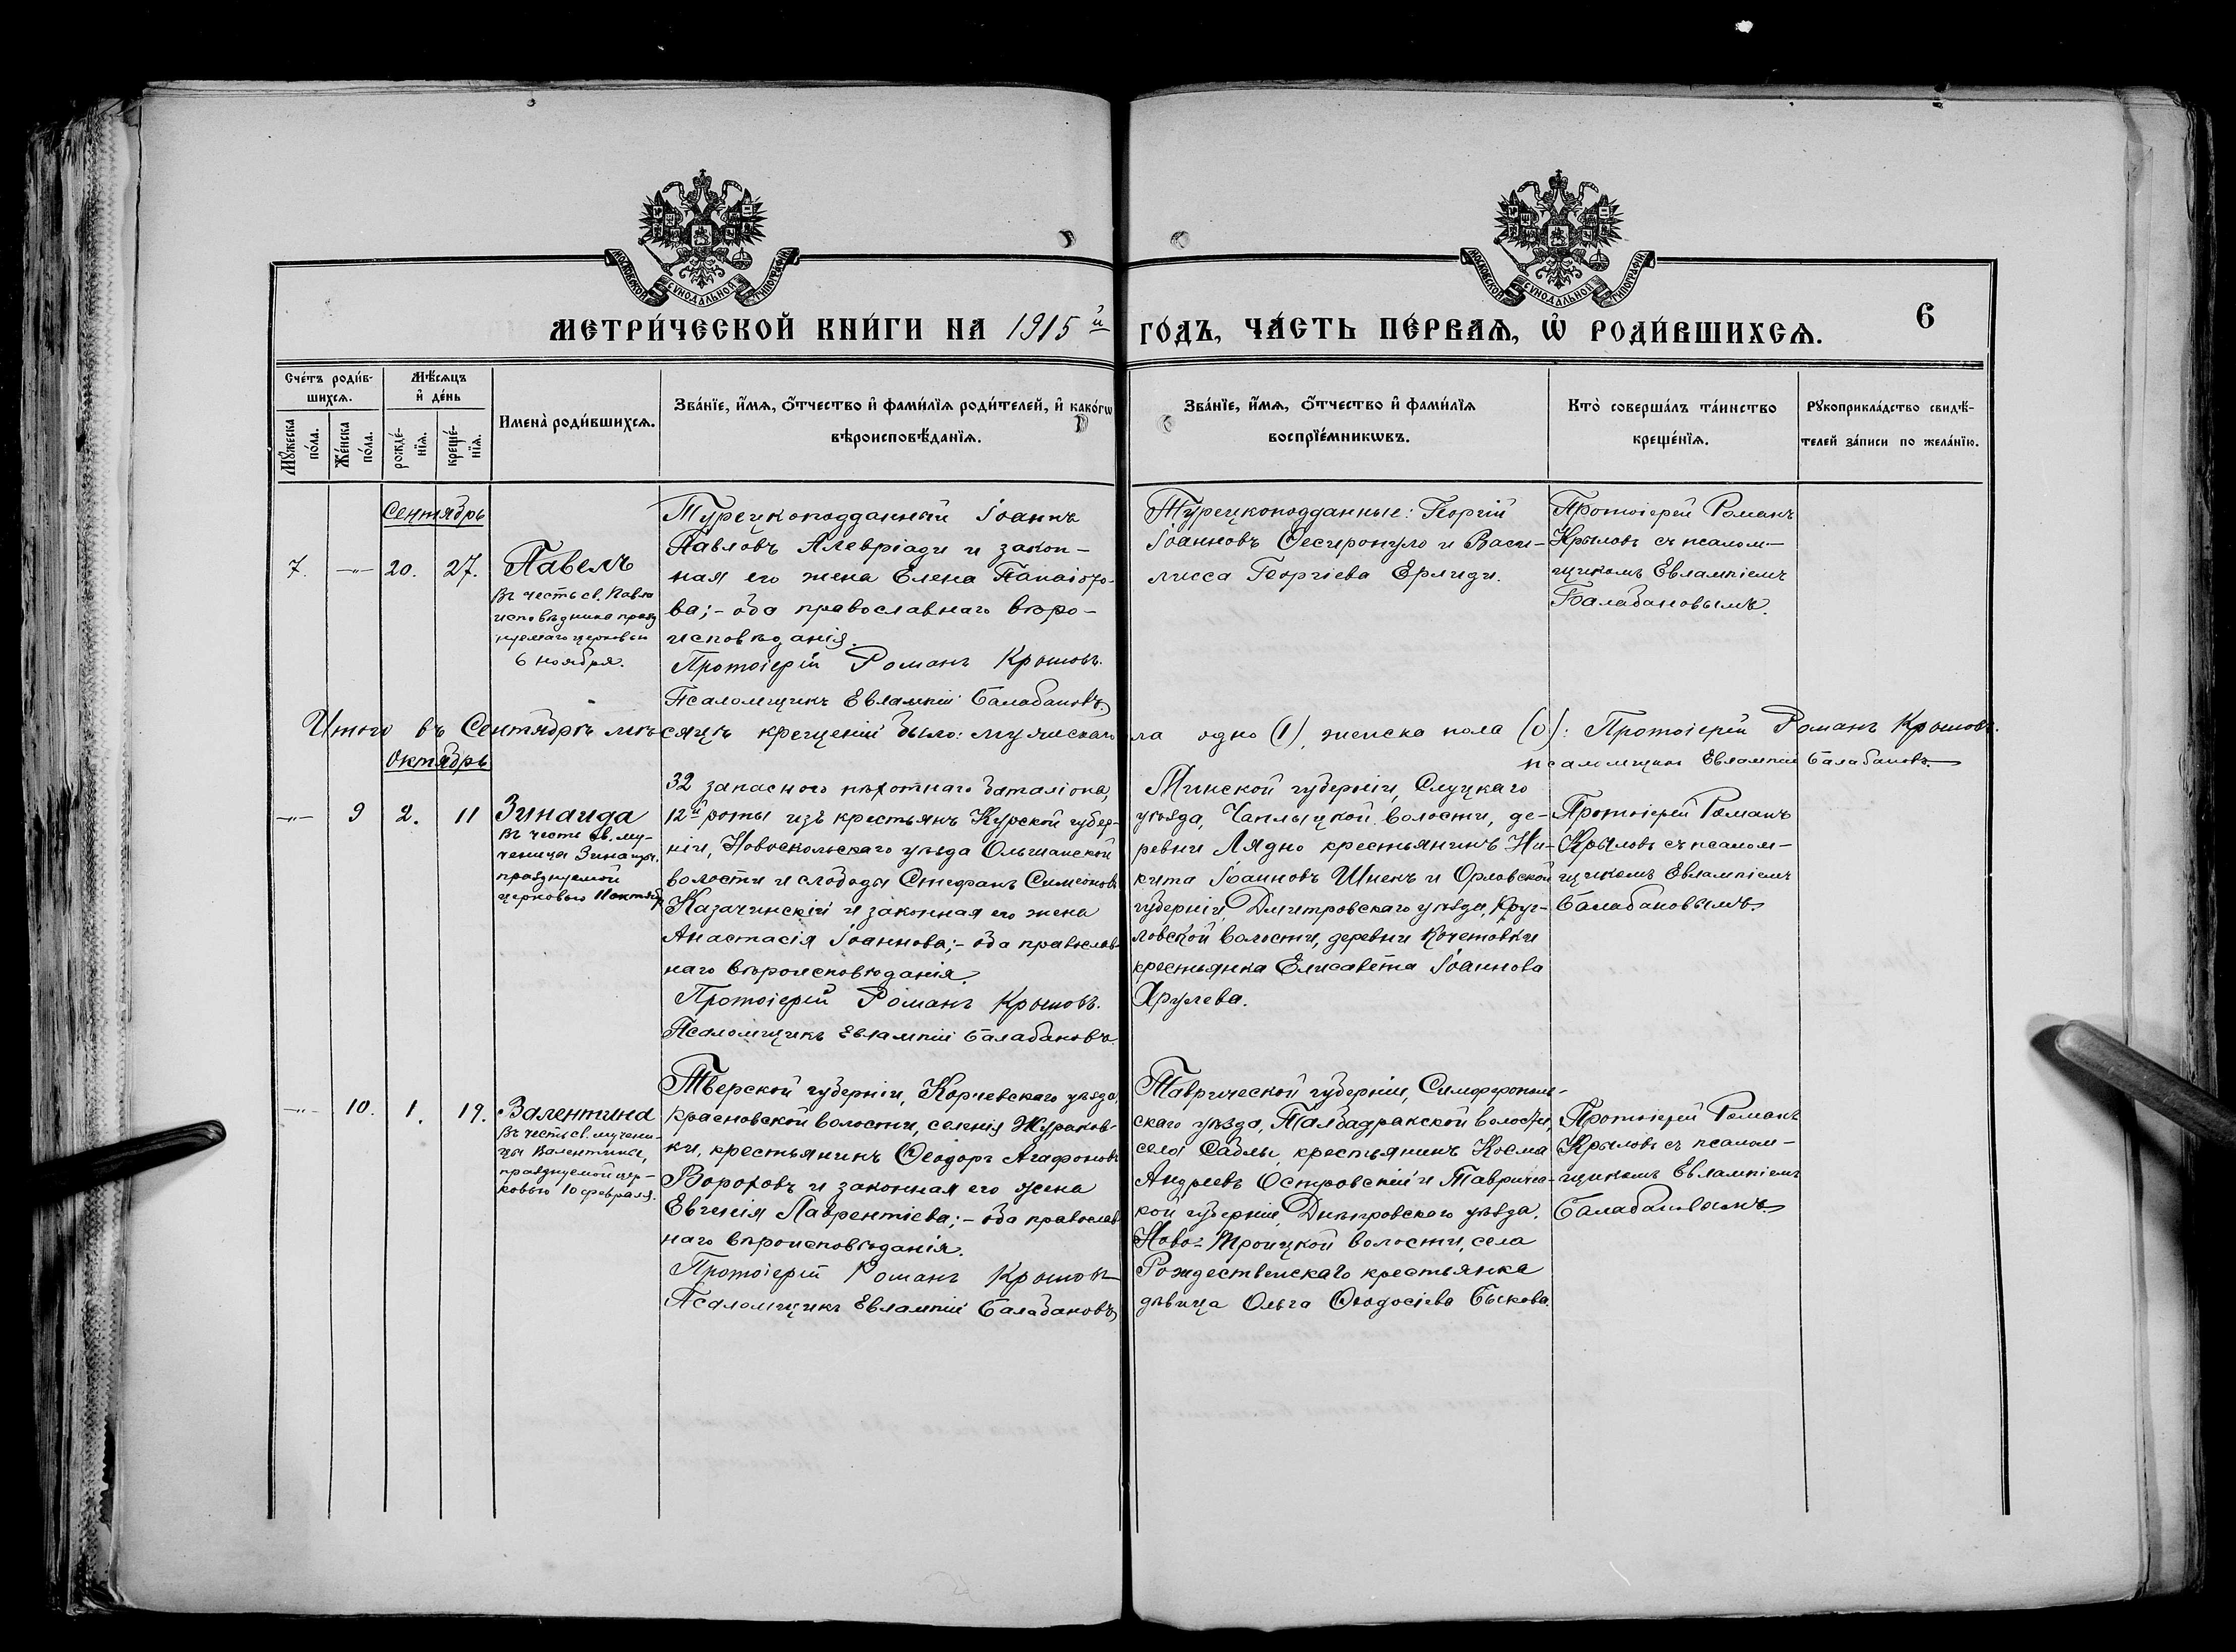 МОСКОВСКОЙ СѴНОДАЛЬНОЙ ТИПОГРАФІИ
МОСКОВСКОЙ СѴНОДАЛЬНОЙ ТИПОГРАФІИ
МЕТРИ́ЧЕСКОЙ КНИ́ГИ НА 1915й ГО́ДЪ, ЧА́СТЬ ПЕ́РВАѦ, Ѡ҆ РОДИ́ВШИХСѦ.
6
Сче́тъ роди́в-
шихсѧ.
Мꙋ́жеска
по́ла.
Же́нска
по́ла.
Мѣ́сѧцъ
и҆ де́нь
рожде́-
нїѧ.
креще́-
нїѧ.
Имена̀ роди́вшихсѧ.
Зва́нїе, и҆́мѧ, ѻ҆́тчество и҆ фами́лїѧ роди́телей, и҆ како́гѡ
вѣроисповѣ́данїѧ.
Зва́нїе, и҆́мѧ, ѻ҆́тчество и҆ фами́лїѧ
воспрїе́мникѡвъ.
Кто̀ соверша́лъ та́инство
креще́нїѧ.
Рꙋкоприкла́дство свидѣ́-
телей за́писи по жела́нїю.
Сентябрь
7. —"— 20. 27.
Павелъ
Въ честь св. Павла
исповѣдника празд
нуемаго церковью
6 ноября.
Турецкоподданный Іоаннъ
Павловъ Алевріади и закон-
ная его жена Елена Панаіото-
ва;- оба православнаго вѣро-
исповѣданія.
Протоіерій Романъ Крыловъ.
Псаломщикъ Евлампій Балабановъ
Турецкоподданные: Георгій
Іоанновъ Ѳесиропуло и Васи-
лисса Георгіева Ерлиди.
Протоіерей Романъ
Крыловъ съ псалом-
щикомъ Евлампіемъ
Балабановымъ.
Итого въ Сентябрѣ мѣсяцѣ крещеній было: мужескаго ла одно (1), женска пола (0): Протоіерей Романъ Крыловъ.
псаломщикъ Евлампій Балабановъ
Октябрь
—"— 9 2. 11
Зинаида
Въ честь св. му-
ченицы Зинаиды,
празднуемой
церковью 11 октябр.
32 запаснаго пѣхотнаго баталіона,
12й роты изъ крестьянъ Курской губер-
ніи, Новоскольскаго уѣзда Ольшанской
волости и слободы Стефанъ Симеоновъ
Казачинскій и законная его жена
Анастасія Іоаннова;- оба православ-
наго вѣроисповѣданія.
Протоіерей Романъ Крыловъ.
Псаломщикъ Евлампій Балабановъ.
Минской губерніи, Слуцкаго
уѣзда, Чаплыцкой волости, де-
ревни Лядно крестьянинъ Ни-
кита Іоанновъ Шпекъ и Орловской
губерніи, Дмитровскаго уѣзда, Круг-
ловской волости, деревни Кочетовки
крестьянка Елисавета Іоаннова
Хрулева.
Протоіерей Романъ
Крыловъ съ псалом-
щикомъ Евлампіемъ
Балабановымъ.
—"— 10. 1. 19.
Валентина
Въ честь св. мучени-
цы Валентины,
празднуемой цер-
ковью 10 февраля.
Тверской губерніи, Корчевскаго уѣзда,
Красновской волости, селенія Жураков-
ки, крестьянинъ Ѳеодоръ Агафоновъ
Вороховъ и законная его жена
Евгенія Лаврентіева;- оба православ
наго вѣроисповѣданія.
Протоіерей Романъ Крыловъ
Псаломщикъ Евлампій Балабановъ
Таврической губерніи, Симферополь-
скаго уѣзда, Подбадракской волости,
села Саблы, крестьянинъ Косма
Андреевъ Островскій и Тавричес-
кой губерніи, Днѣпровскаго уѣзда.
Ново-Троицкой волости, села
Рождественскаго крестьянка
дѣвица Ольга Ѳеодосіева Быкова.
Протоіерей Романъ
Крыловъ съ псалом-
щикомъ Евлампіемъ
Балабановымъ